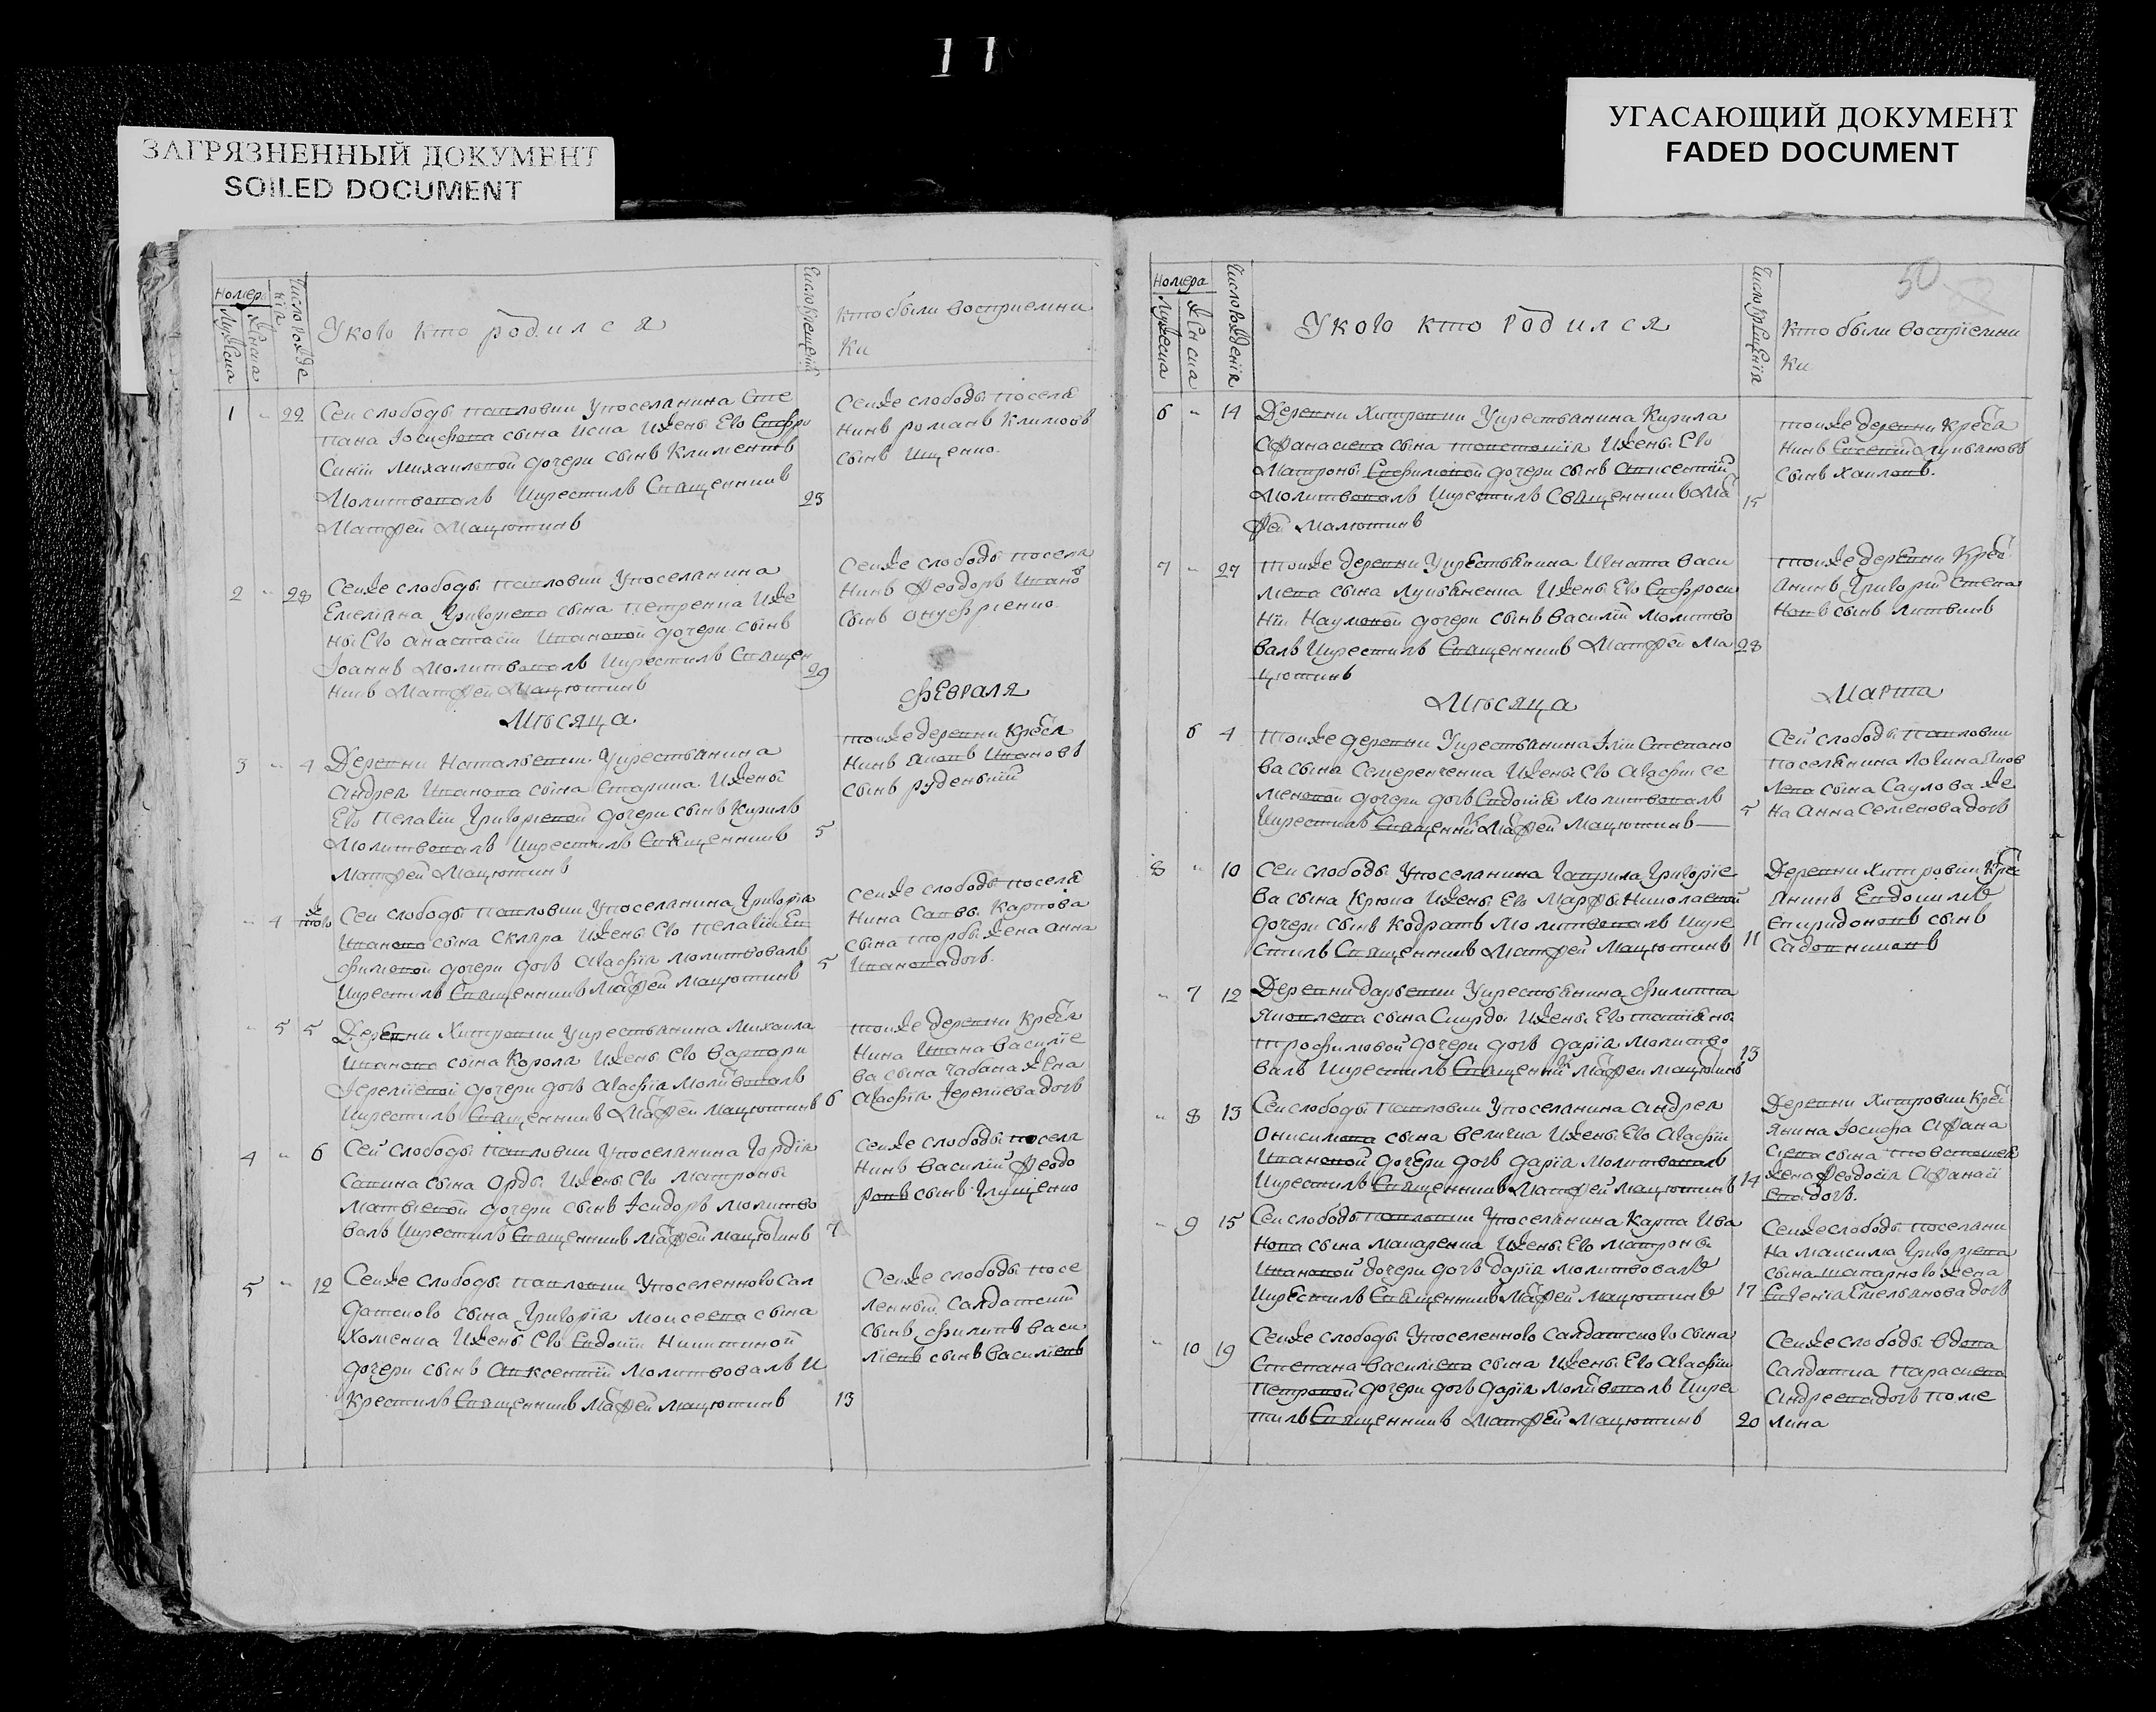 11
ЗАГРЯЗНЕННЫЙ ДОКУМЕНТ
SOILED DOCUMENT
УГАСАЮЩИЙ ДОКУМЕНТ
FADED DOCUMENT
Номер
Мужеска
Женска
Число рожденія
У кого кто родился
Число крещенія
кто были восприемни
ки
1 " 22 Сеи слободы павловки у поселанина Сте
пана Іосифова сына Иска и жены его Евфро
Синіи Михаиловой дочери сынъ Климентъ
Молитвовалъ и крестилъ Священникъ 23
Матфеи Мацютинъ
Сеиже слободы посела
нинъ романъ Климовъ
сынъ Ищенко.
2 " 28 Сеиже слободы павловки у поселанина
Емеліана Григорева сына петренка и же
ны его анастасіи Ивановой дочери сынъ
Іоаннъ Молитвовалъ и крестилъ Священ 29
никъ Матфеи Мацютинъ
Сеиже слободы посела
нинъ Феодоръ Ивановъ
сынъ онуфріенко.
Мѣсяца
февраля
3 " 4 Деревни Натальевки у крестьянина
андрея Иванова сына Старика и жены
его пелагіи Григоріевой дочери сынъ Кирилъ
Молитвовалъ и крестилъ Священникъ 5
Матфеи Мацютинъ
тоиже деревни кресьа
нинъ аковъ Ивановъ
сынъ руденькій
" 4 тогож Сеи слободы павловки у поселанина Григорія
Иванова сына Скляра и жены его пелагіи Ев
фимовой дочери дочь агафія молитвовалъ
и крестилъ Священникъ Матфеи Мацютинъ 5
Сеиже слободы посела
нина Саввы Карпова
сына торбы жена анна
Иванова дочь.
" 5 5 Деревни Хитровки у крестьянина Михаила
Иванова сына Короля и жены его варвари
Іереміевой дочери дочь агафія молитвовалъ
и крестилъ Священникъ Матфеи Мацютинъ 6
тоиже деревни кресьа
нина Ивана василіе
ва сына Чабана жена
агафія Іереміева дочь
4 " 6 Сеи слободы павловки у поселанина Гордія
Савина сына Орды и жены его матроны
матвіевой дочери сынъ Ісидоръ молитво
валъ и крестилъ Священникъ Матфеи Мацютинъ 7
Сеиже слободы посела
нинъ василій Феодо
ровъ сынъ Глущенко
5 " 12 Сеиже слободы павловки у поселенного Сал
датского сына Григорія моисеева сына
Хоменка и жены его Евдокіи Никитиной
дочери сынъ авксентій молитвовалъ и
крестилъ Священникъ Матфеи Мацютинъ 13
Сеиже слободы посе
ленный Салдатскій
сынъ филипъ васи
ліевъ сынъ василіевъ
50
Номера
Мужеска
Женска
Число рожденія
У кого кто родился
Число крещенія
Кто были восприемни
ки
6 " 14 Деревни Хитровки у крестьянина Кирила
афанасіева сына товстокія и жены его
Матроны Евфимовой дочери сынъ авксентій
Молитвовалъ и крестилъ Священникъ Мат 15
фей Малютинъ
тоиже деревни кресьа
нинъ Евсевій Лукьановъ
сынъ Хаиловъ.
7 " 27 тоиже деревни у крестьанина Игната Васи
лева сына лукьаненка и жены его Евфроси
ніи Наумовой дочери сынъ василій молитво
валъ и крестилъ Священникъ Матфей Ма 28
цютинъ
тоиже деревни крес
анинъ Григорій Степа
новъ сынъ литвинъ
Мѣсяца
Марта
6 4 тоиже деревни у крестьянина Іліи Степано
ва сына Семеренченка и жены его агафіи се
меновой дочери дочь Евдокіа молитвовалъ
и крестилъ Священник Матфей Мацютинъ 5
Сей слободы павловки
поселянина логина Яков
лева сына Саулова же
на анна Семенова дочь
8 " 10 Сеи слободы у поселанина Гаврила Григоріе
ва сына Крюка и жены его марфы николаевой
дочери сынъ Кодратъ молитвовалъ и кре
стилъ Священникъ Матфей Мацютинъ 11
Деревни Хитровки крес
янинъ Евдокимъ
Спиридоновъ сынъ
Садовниковъ
" 7 12 Деревни дарьевки у крестьанина филиппа
Яковлева сына Скирды и жены его татіаны
трофимовой дочери дочь дарія молитво
валъ и крестилъ Священник Матфеи мацютинъ 13
" 8 13 Сеи слободы павловки у поселанина андрея
Онисимова сына величка и жены его агафіи
Ивановой дочери дочь дарія молитвовалъ
и крестилъ Священникъ Матфей Мацютинъ 14
Деревни Хитровки крес
янина Іосифа афана
сіева сына товстокей
жена Феодосія афанасі
ева дочь.
" 9 15 Сеи слободы павловки у поселанина Карпа Ива
нова сына макаренка и жены его матроны
Ивановой дочери дочь дарія молитвовалъ
и крестилъ Священникъ Матфей Мацютинъ 17
Сеиже слободы поселани
на максима Григорьева
сына шапарного жена
Евгенія Емельанова дочь
" 10 19 Сеиже слободы у поселенного Салдатского сына
Степана василіева сына и жены его агафіи
петровой дочери дочь дарія молитвовалъ и кре
тилъ Священникъ Матфей Мацютинъ 20
Сеиже слободы вдова
салдатка параскева
андреева дочь поме
лина